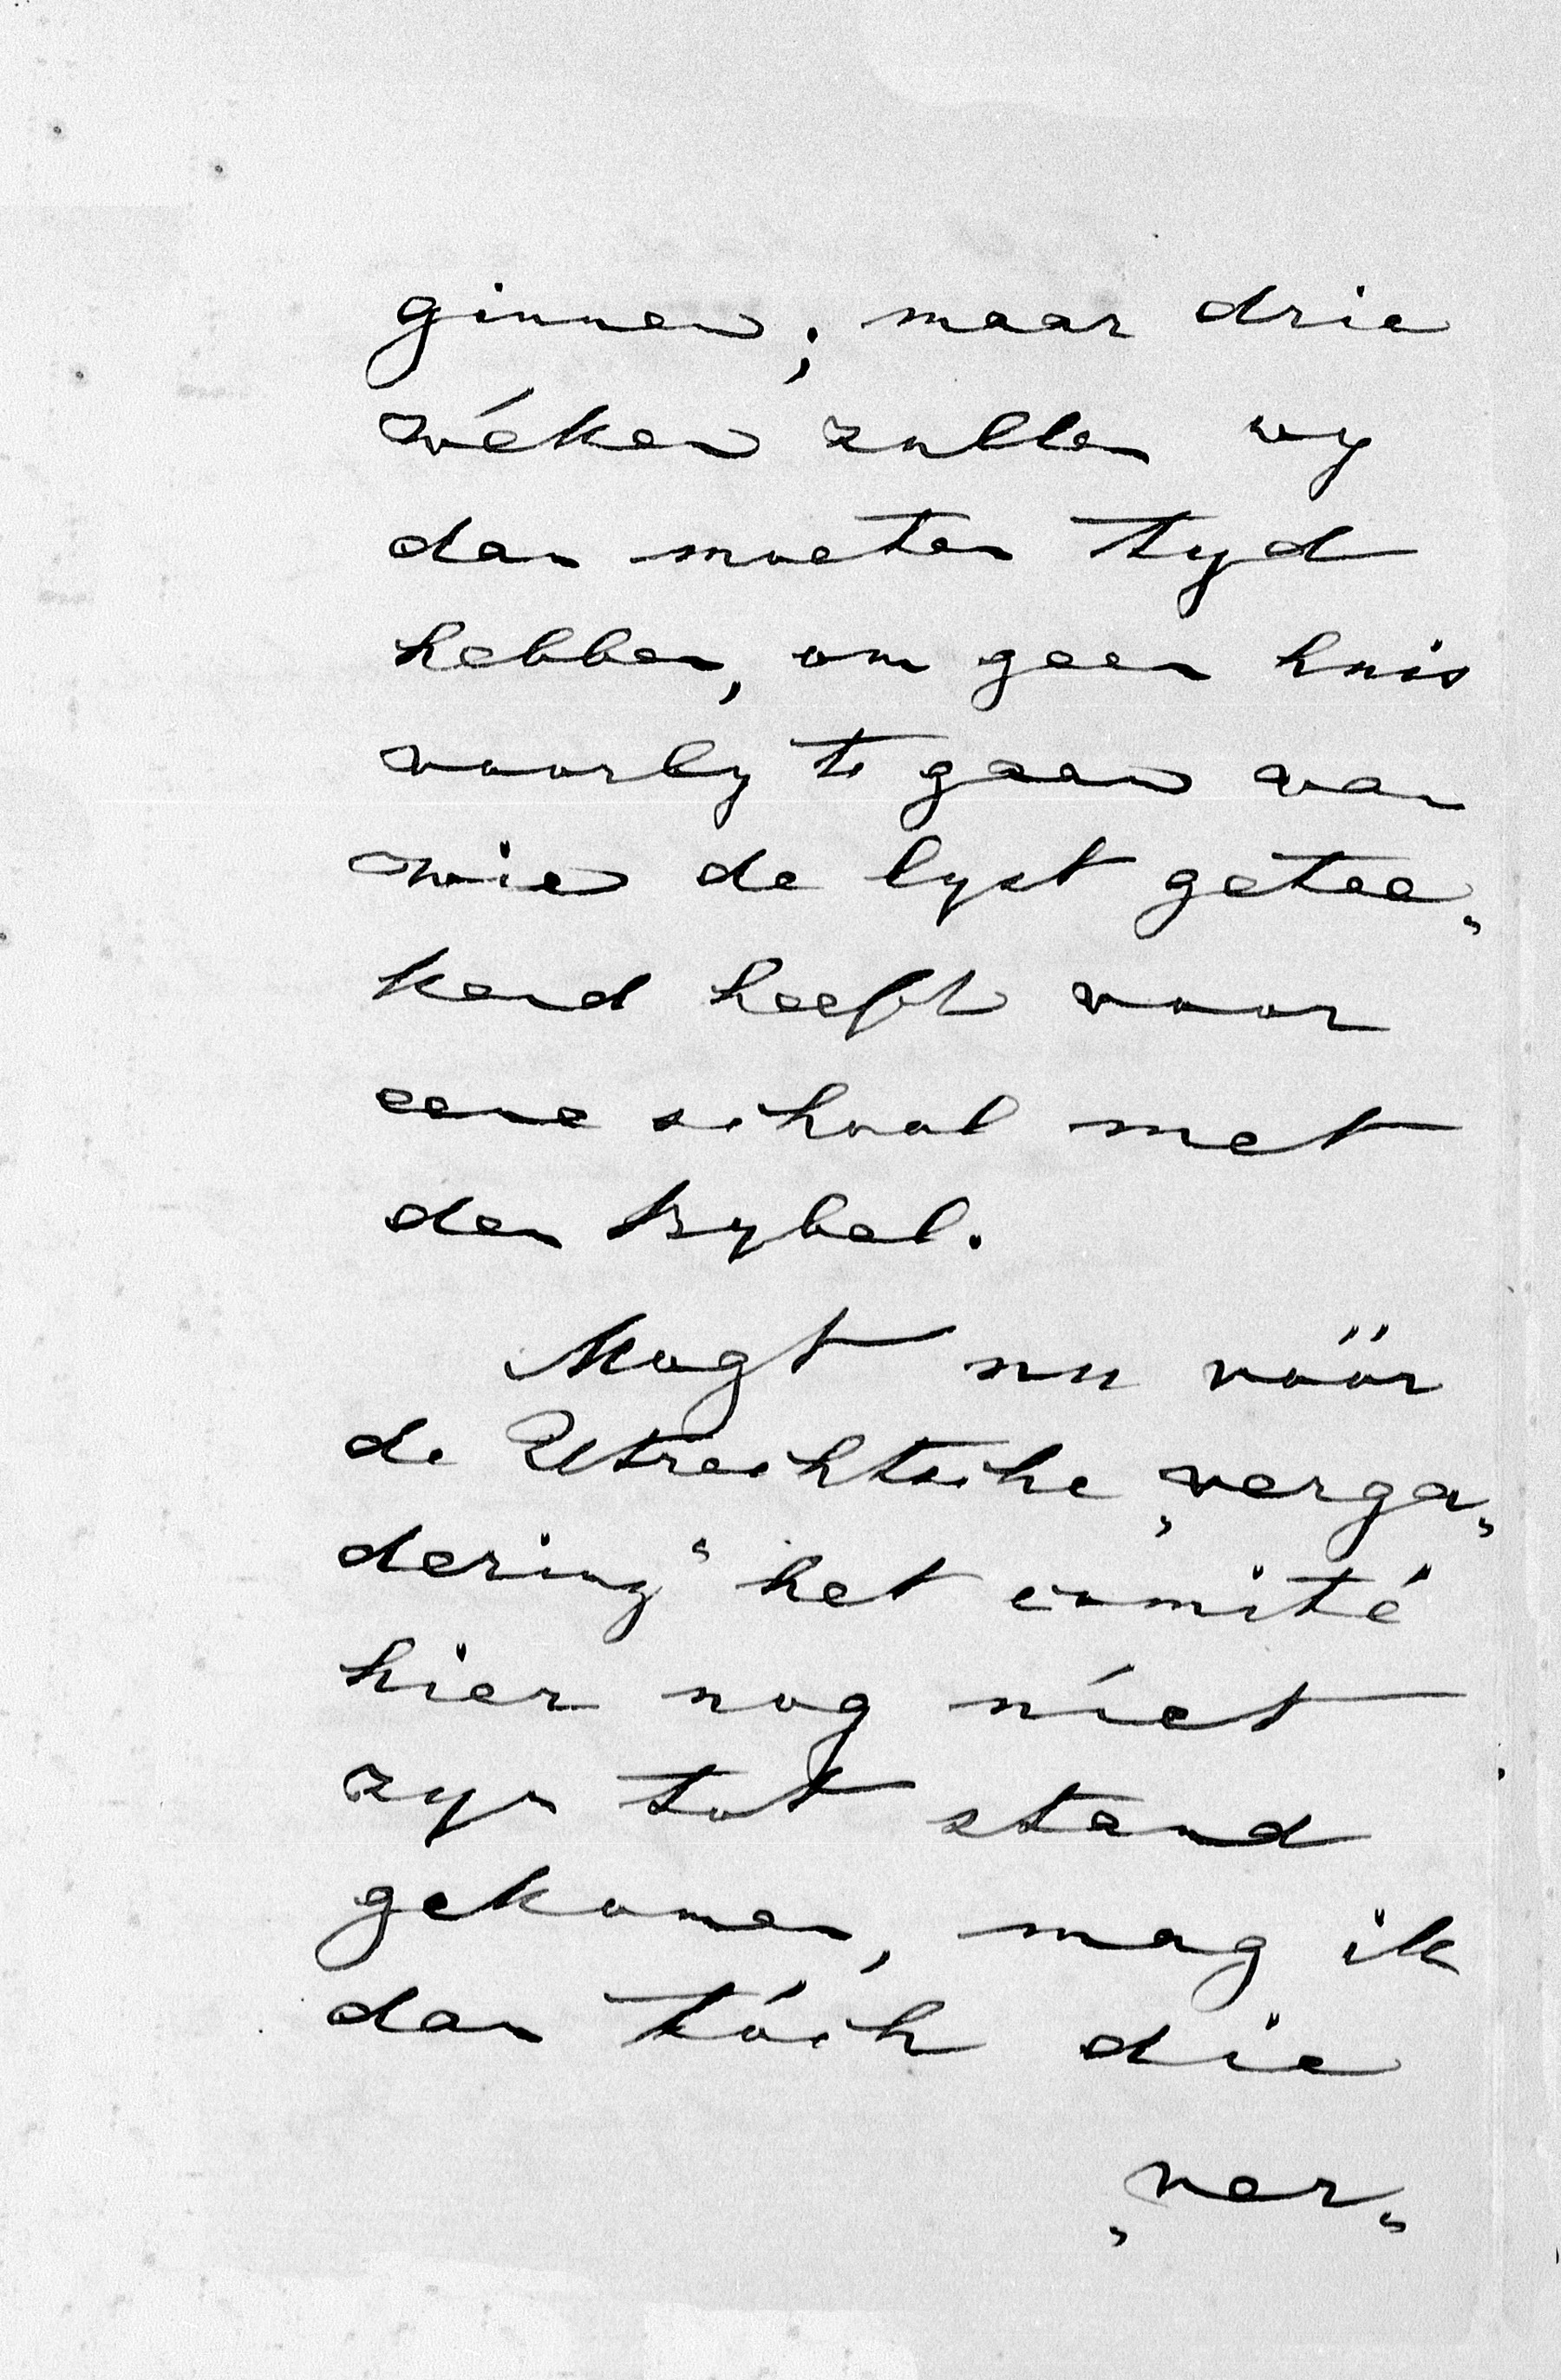 ginnen; maar drie
wéken zullen wy
dan moeten tyd
hebben, om geen huis
voorby te gaan van
wie de lyst getee„
kend heeft voor
eene school met
den bybel.
Mogt nu vóór
de Utrechtsche „verga„
dering“ het comité
hier nog níet
zyn tot stand
gekomen, mag ik
dan tóch die
„ver„